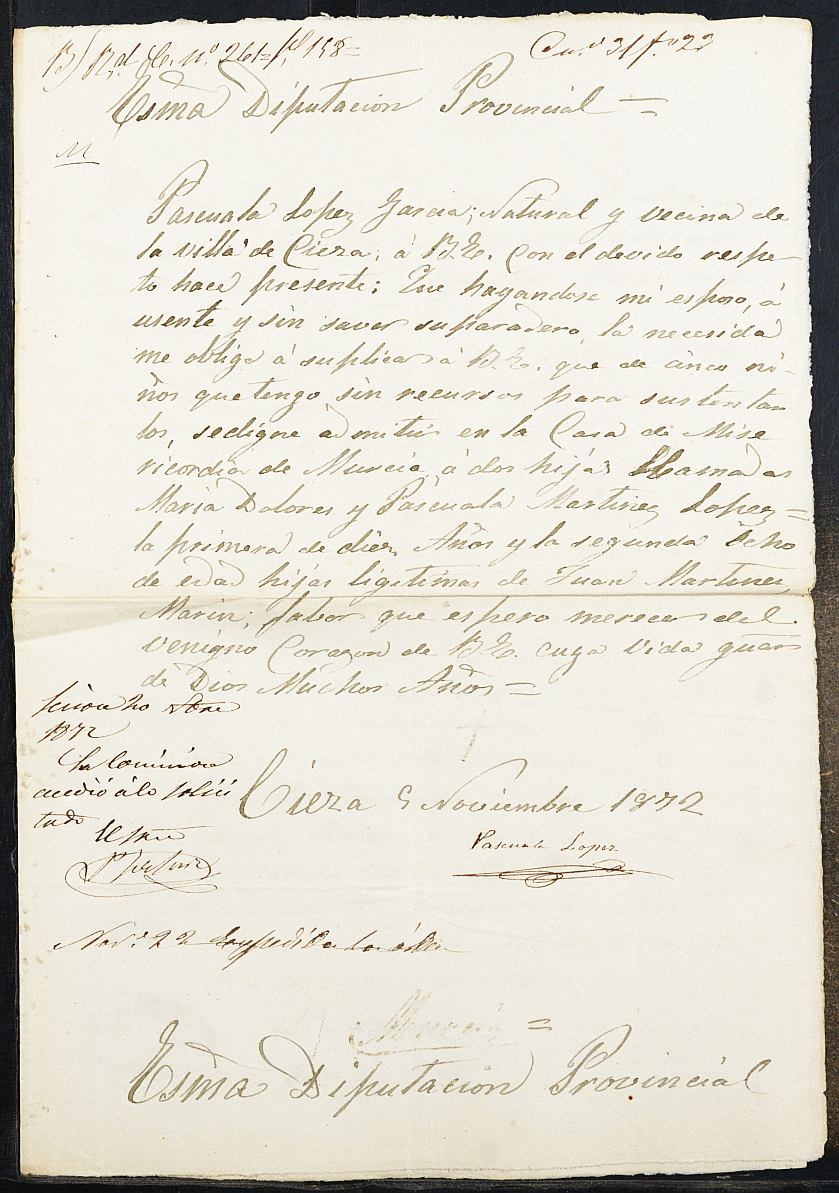 Rd. Cl. nº. 261 fl. 158=
Cn.º 31 f.º 23
Esma Diputacion Provincial =
M
Pascuala Lopez Garcia; Natural y vecina de
la villa de Cieza; á B.E. Con el devido respe
to hace presente; Que hagandose mi esposo, á
usente y sin saver su paradero, la necesidá
me obliga á suplicar á B.E. que de cinco ni-
ños que tengo sin recursos para sustentar
los, se digne admitir en la Casa de Mise
ricordia de Murcia, á dos hijas Llamadas
Maria Dolores y Pascuala Martinez Lopez=
la primera de diez Años y la segunda Ocho
de edad hijas ligitimas de Juan Martinez
Marin; fabor que espero merecer del
venigno Corazon de B.E. cuya Vida guar
de Dios Muchos Años=
Sesion 20 Nbre
1872
La Comision
accedió á lo solici
tado
Cieza 5 Noviembre 1872
Pascuala Lopez
Nov.e 22 Expedida la órden
Murcia =
Esma Diputacion Provincial